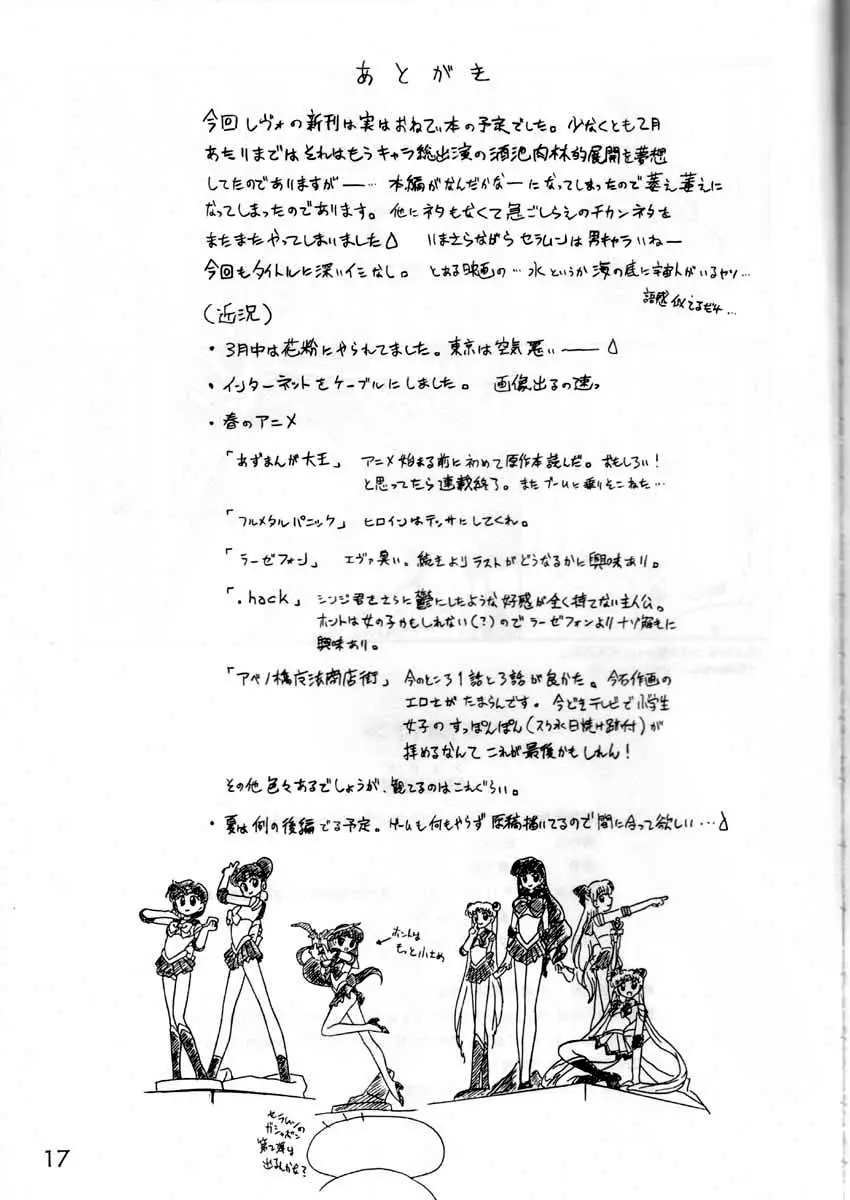 あとがき
今回レヴォの新刊は実はおねてぃ本の予定でした。少なくとも2月
あたりまではそれはもうキャラ総出演の酒池肉林的展開を夢想
してたのでありますがー… 本編がなんだかなーになってしまったので萎え萎えに
なってしまったのであります。他にネタもなくて急ごしらえのチカンネタを
またまたやってしまいました いまさらながらセラムンは男キャラいねー
今回もタイトルに深いイミなし。 とある映画の…水というか海の底に宇宙人がいるヤツ…
語感似てるだけ…
(近況)
・3月中は花粉にやられてました。東京は空気悪いー
・インターネットをケーブルにしました。 画像出るの速っ
・春のアニメ
「あずまんが大王」 アニメ始まる前に初めて原作本読んだ。おもしろい!
と思ってたら連載終了。またブームに乗りそこねた…
「フルメタルパニック」 ヒロインはテッサにしてくれ。
「ラーゼフォン」 エヴァ臭い。続きよりラストがどうなるかに興味あり。
「.hack」 シンジ君をさらに鬱にしたような好感が全く持てない主人公。
ホントは女の子かもしれない(?)のでラーゼフォンよりナゾ解きに
興味あり。
「アベノ橋魔法商店街」 今のところ1話と3話が良かった。
その他色々あるでしょうが、観てるのはこれぐらい。
・夏は例の後編でる予定。ゲームも何もやらず原稿描いてるので間に合って欲しい…
ホントは
もっと小さめ
セラムンの
ガシャポン
第2弾も
出んかな?
17